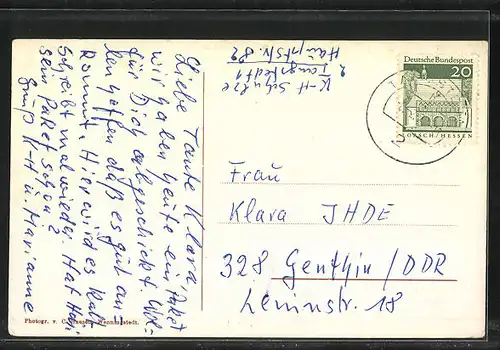 Liebe Tante Klara
wir haben heute ein Paket
für Dich abgeschickt. Wol-
len hoffen daß es gut an-
kommt. Hier wird es kalt
Schreibt mal wieder. Hat
sein Paket schon?
Gruß K-H u. Marianne
K-H Schulze
2 Tangstedt 1
Hauptstr. 82
Deutsche Bundespost
20
LORSCH/HESSEN
Frau
Klara IHDE
328 Genthin/DDR
Leninstr. 18
Photogr. v. C.